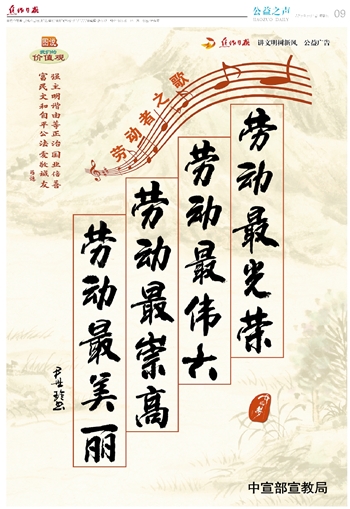 焦作日报
公益之声
09
图说
我们的
价值观
焦作日报 讲文明树新风 公益广告
富强 民主 文明 和谐
自由 平等 公正 法治
爱国 敬业 诚信 友善
劳动者之歌
劳动最光荣
劳动最伟大
劳动最崇高
劳动最美丽
中国梦
中宣部宣教局